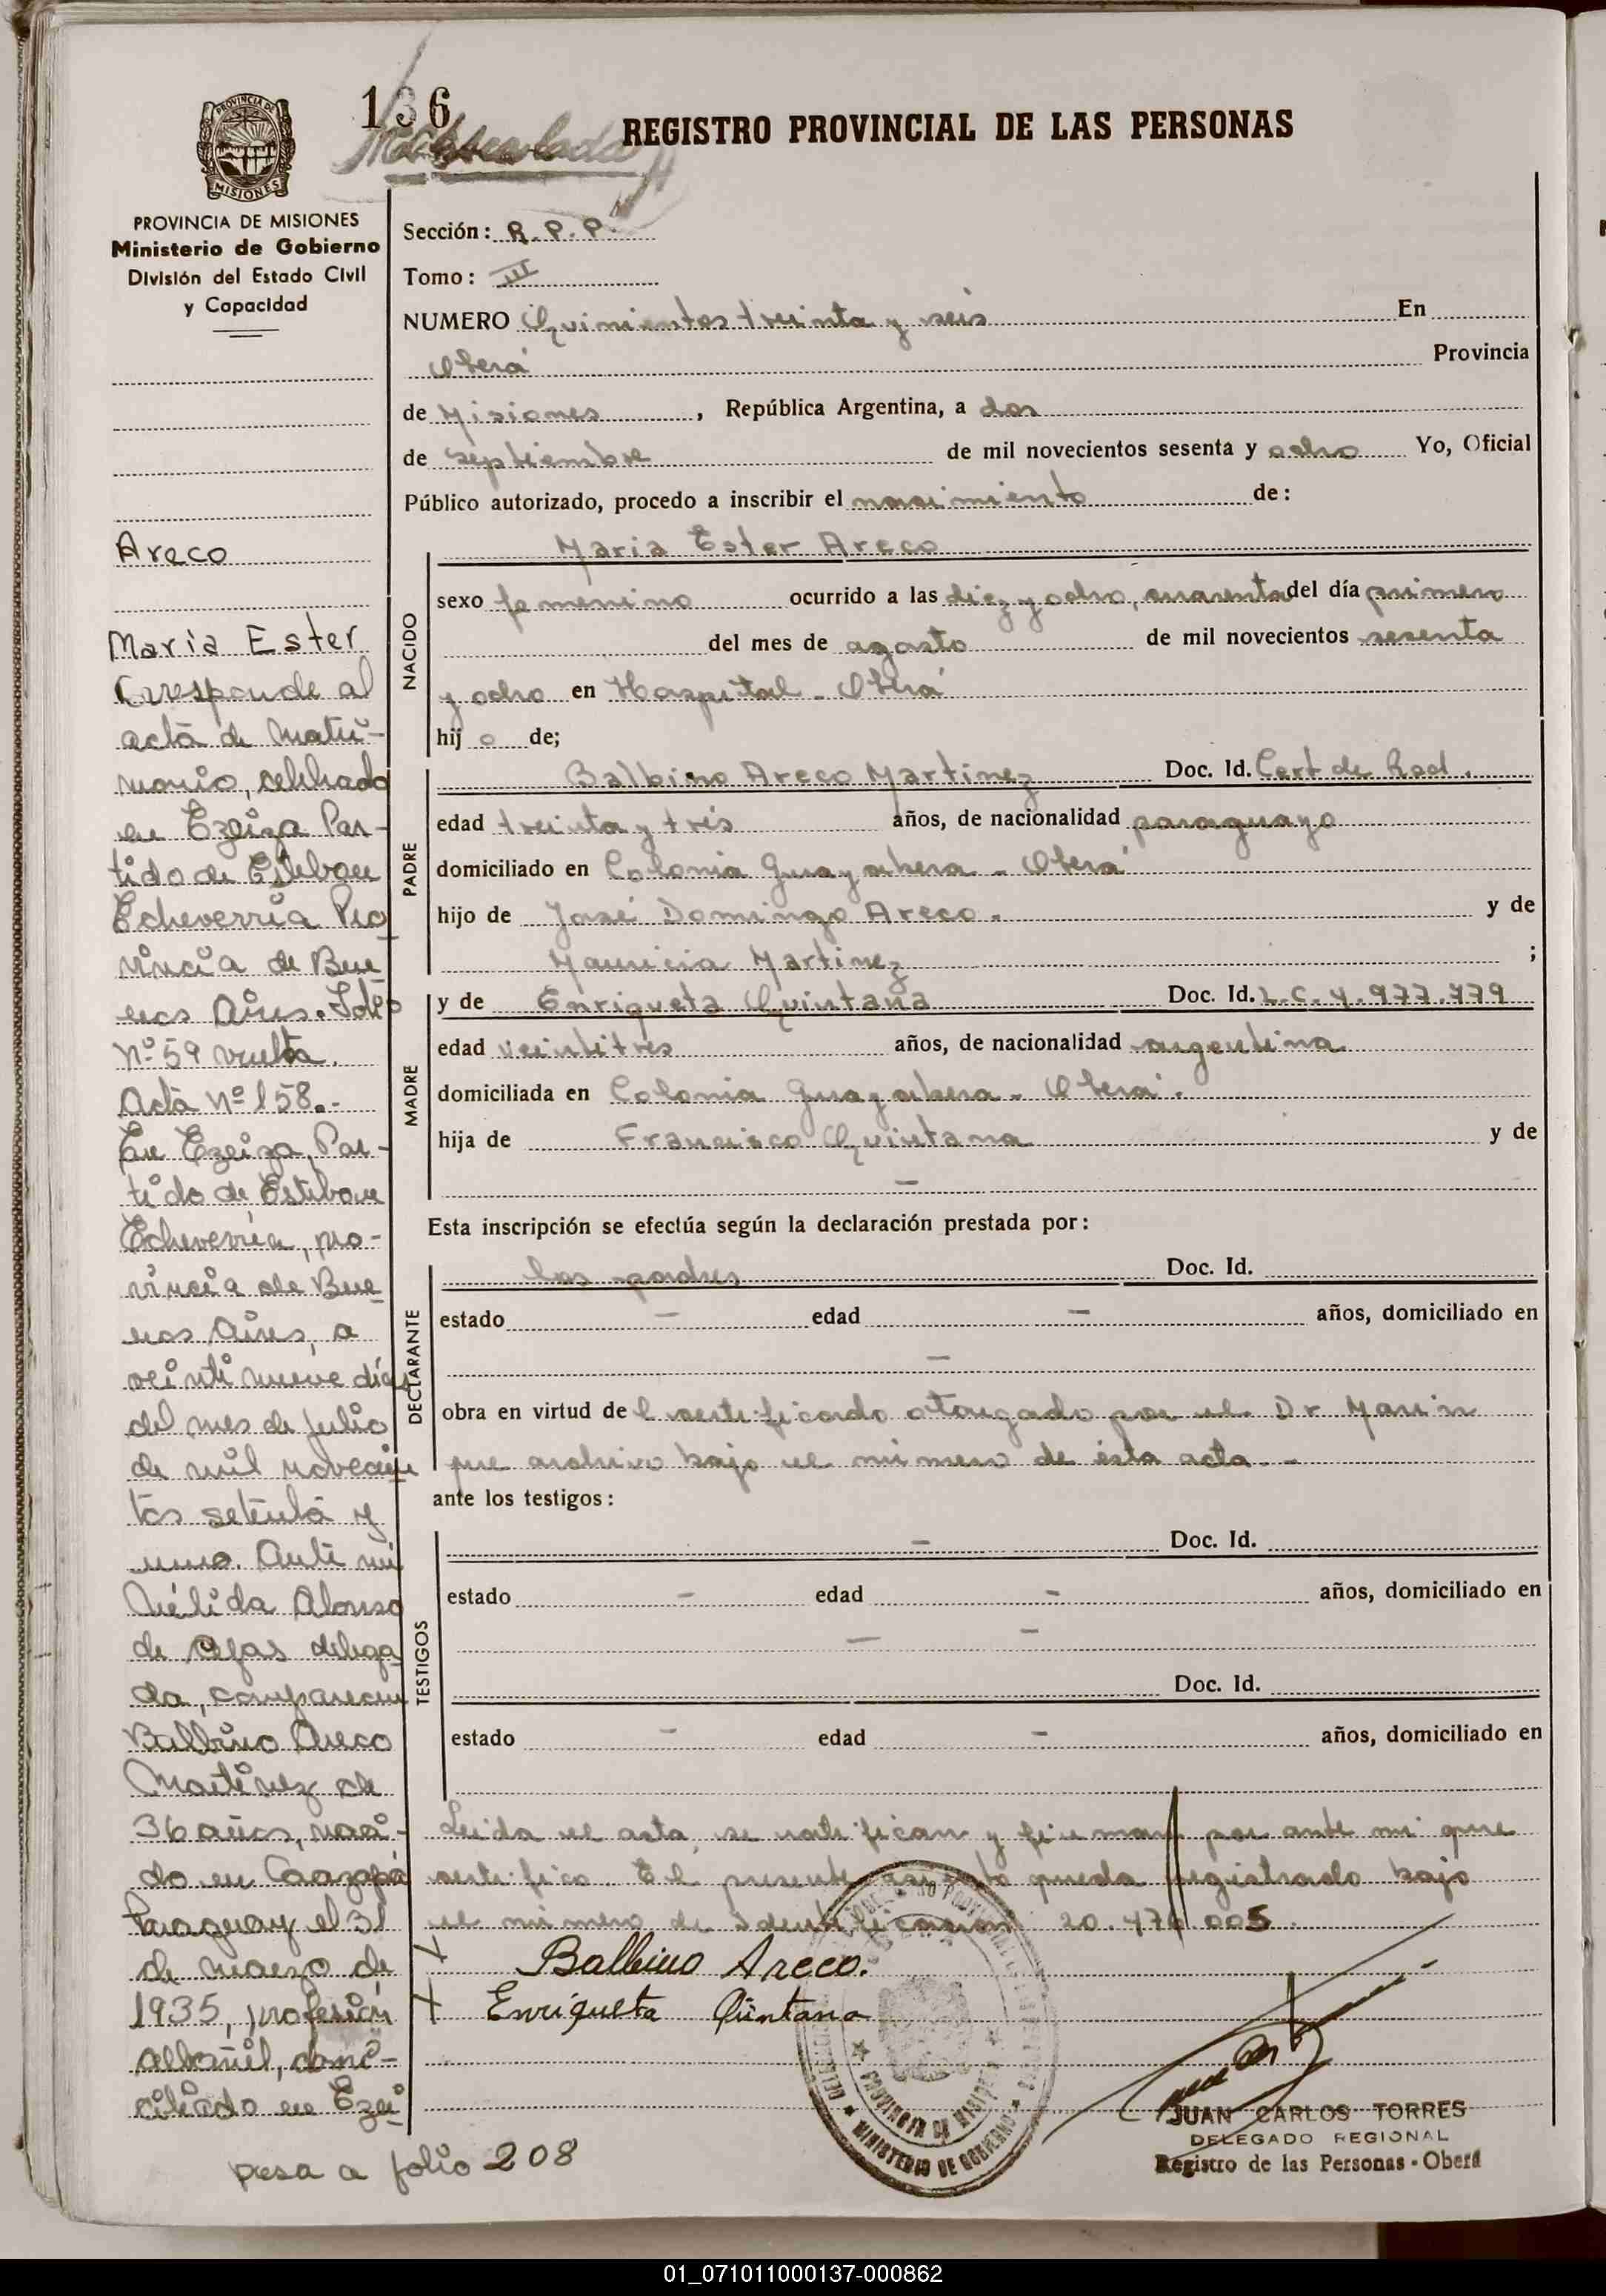 136
Matriculada
REGISTRO PROVINCIAL DE LAS PERSONAS
PROVINCIA DE MISIONES
PROVINCIA DE MISIONES
Ministerio de Gobierno
División del Estado Civil
y Capacidad
Areco
Maria Ester
Corresponde al
acta de matri-
monio, celebrado
en Ezeiza Par-
tido de Esteban
Echeverría Pro
vincia de Bue
nos Aires. Folio
Nº 59 vuelta.
Acta Nº 158.-
En Ezeiza, Par-
tido de Esteban
Echeverría, pro-
vincia de Bue
nos Aires, a
veintinueve días
del mes de julio
de mil novecien
tos setenta y
uno. Ante mi
Nélida Alonso
de Cejas delega
da, comparecen
Balbino Areco
Martinez de
36 años, naci-
do en Caazapá
Paraguay el 31
de marzo de
1935, profesión
albañil, domi-
ciliado en Ezei
pasa a folio 208
Sección: R.P.P.
Tomo: III
NUMERO Quinientos treinta y seis En
Oberá Provincia
de Misiones, República Argentina, a dos
de septiembre de mil novecientos sesenta y ocho Yo, Oficial
Público autorizado, procedo a inscribir el nacimiento de:
NACIDO
Maria Ester Areco
sexo femenino ocurrido a las diez y ocho, cuarenta del día primero
del mes de agosto de mil novecientos sesenta
y ocho en Hospital - Oberá
hij o de;
PADRE
Balbino Areco Martinez Doc. Id. Cert de Rad.
edad treinta y tres años, de nacionalidad paraguayo
domiciliado en Colonia Guayabera - Oberá
hijo de José Domingo Areco. y de
Mauricia Martinez ;
MADRE
y de Enriqueta Quintana Doc. Id. L.C. 4.977.779
edad veintitres años, de nacionalidad argentina
domiciliada en Colonia Guayabera - Oberá.
hija de Francisco Quintana y de
-
Esta inscripción se efectúa según la declaración prestada por:
DECLARANTE
los padres Doc. Id.
estado - edad - años, domiciliado en
-
obra en virtud del certificado otorgado por el Dr Marin
que archivo bajo el número de ésta acta. -
ante los testigos:
TESTIGOS
- Doc. Id.
estado - edad - años, domiciliado en
- -
Doc. Id.
estado - edad - años, domiciliado en
Leida el acta, se ratifican y firman por ante mi que
certifico. El presente asiento queda registrado bajo
el número de identificación 20.476.005.
Balbino Areco.
Enriqueta Quintana
PROVINCIA DE MISIONES
MINISTERIO DE GOBIERNO
JUAN CARLOS TORRES
DELEGADO REGIONAL
Registro de las Personas - Oberá
01_071011000137-000862